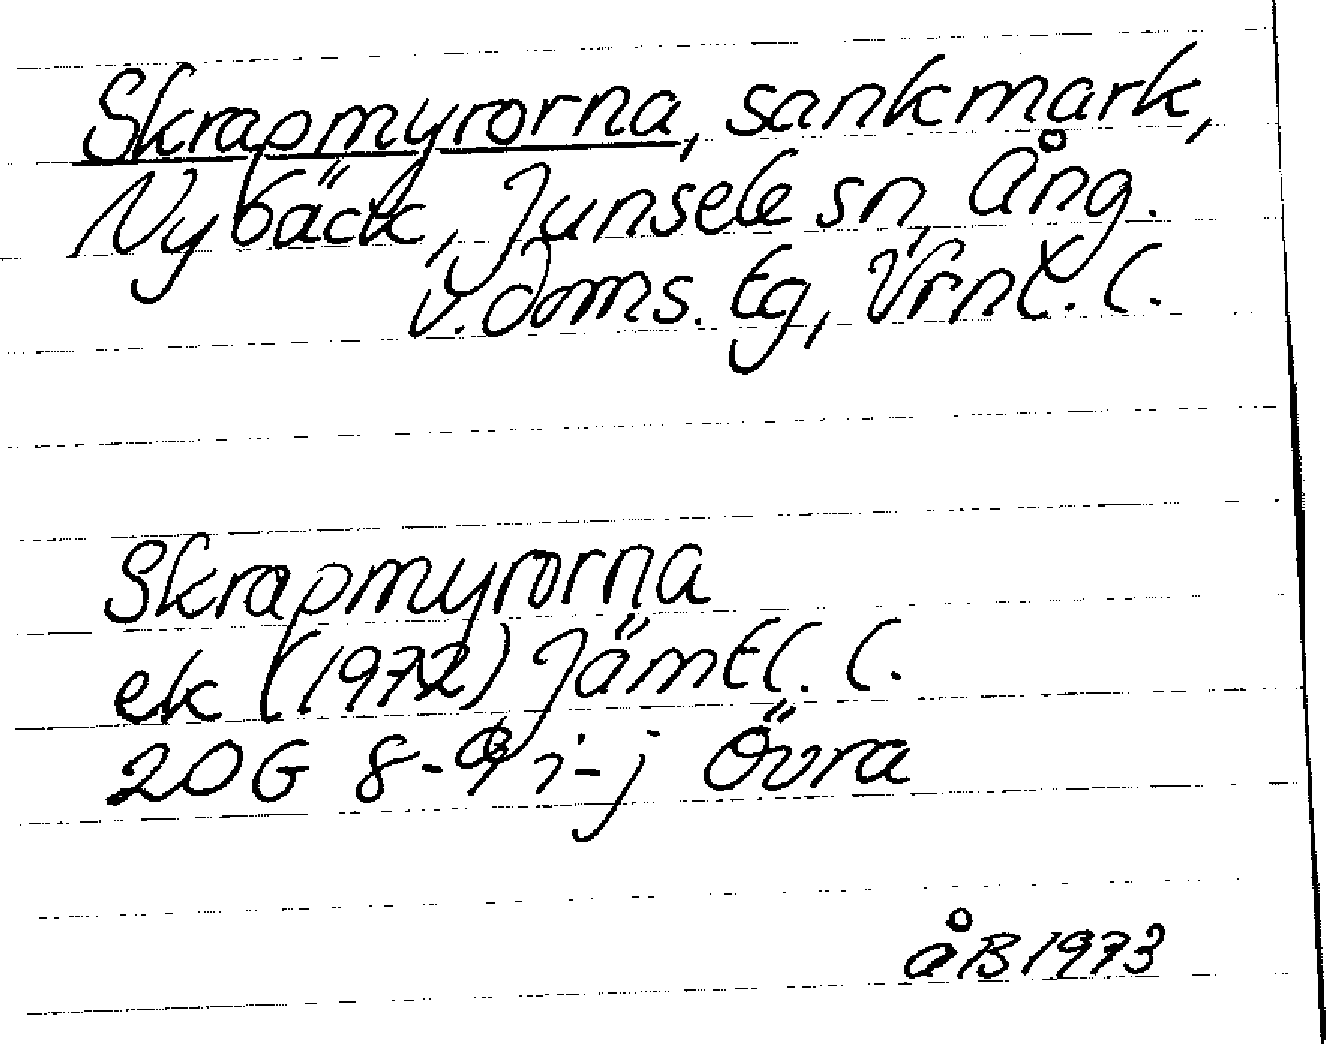 Skrapmyrorna, sankmark,
Nybäck, Junsele sn, Ång.
V. doms. tg, Vrnl. l.
Skrapmyrorna
ek (1972) Jämtl. l.
20G 8-9 i-j Övra
åB 1973